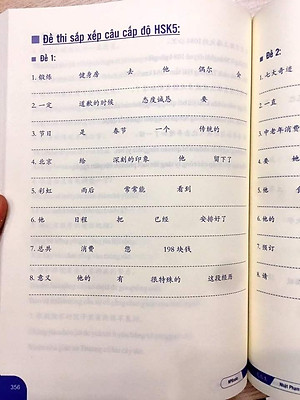 Đề thi sắp xếp câu cấp độ HSK5:
Đề 1:
1. 锻炼 健身房 去 他 偶尔 会
2. 一定 道歉的时候 态度诚恳 要
3. 节日 是 春节 一个 传统的
4. 北京 给 深刻的印象 他 留下了
5. 彩虹 雨后 常常能 看到
6. 他 日程 把 已经 安排好了
7. 总共 消费 您 198 块钱
8. 意义 他的 有 很特殊的 这段经历
356
Đề 2:
1. 七大奇迹
2. 一直
3. 中老年消费
4. 要 她
5. 他
6. 他的
7. 预订
8. 请
Nhật Phạm